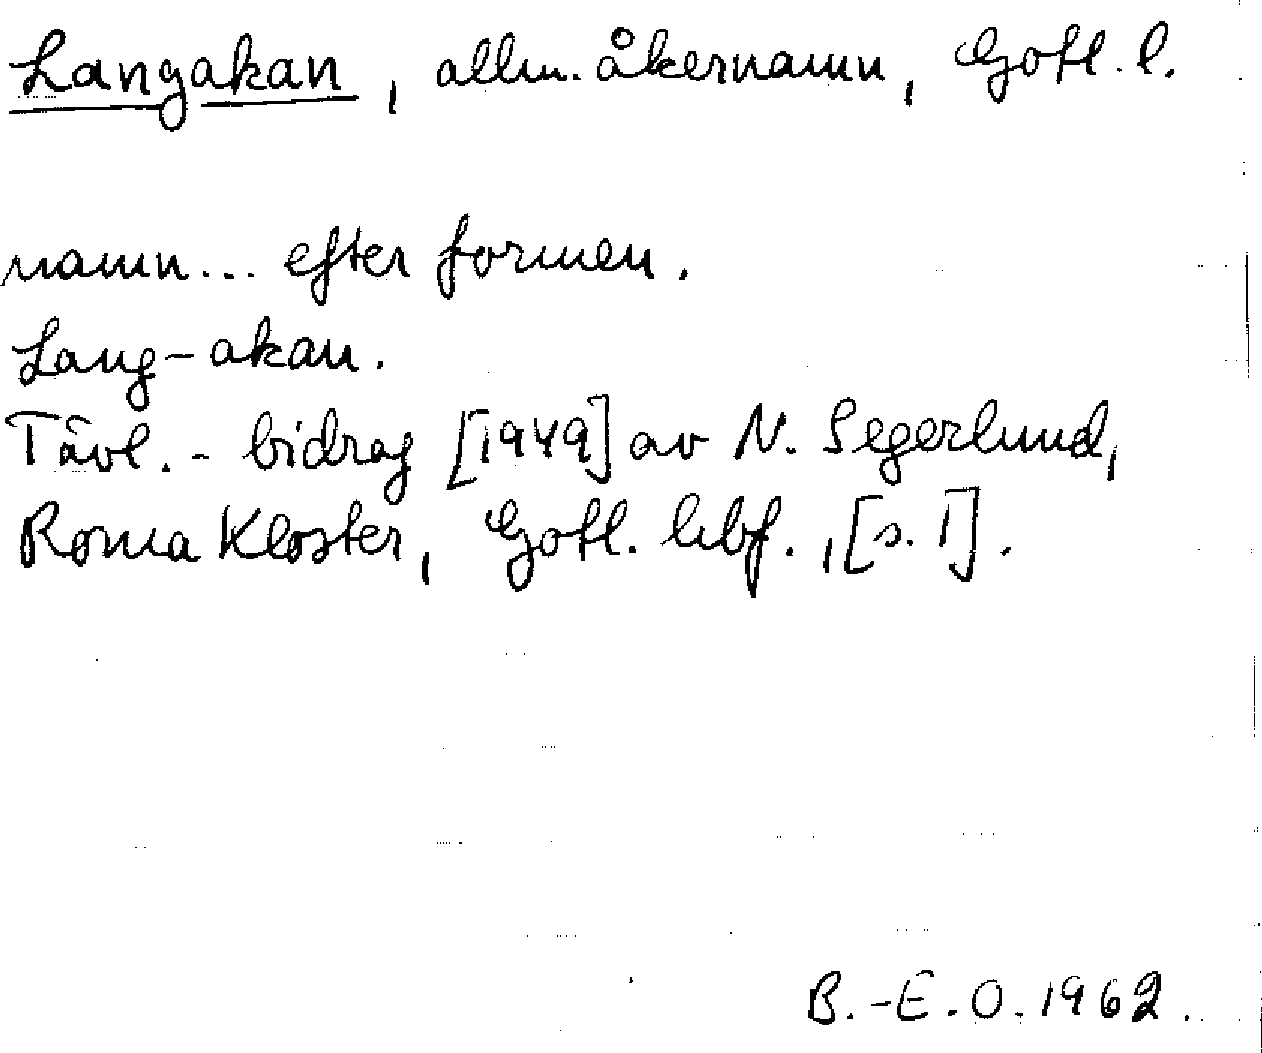 Langakan, allm. åkernamn, Gotl. l.
namn... efter formen.
Lang-akan.
Tävl.-bidrag [1949] av N. Segerlund,
Roma Kloster, Gotl. hbf., [s. 1].
B.-E. O. 1962.